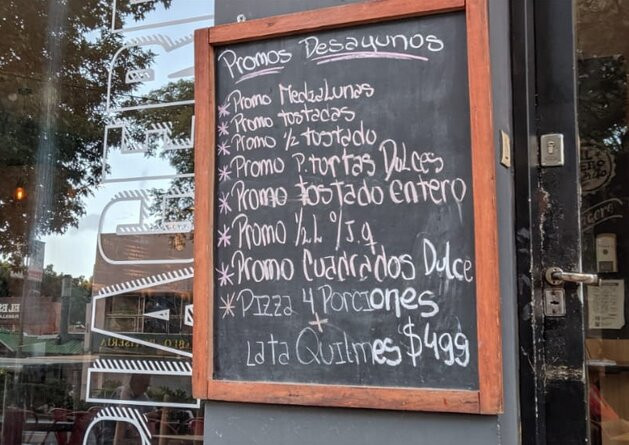 Promos Desayunos
* Promo Medialunas
* Promo tostadas
* Promo 1/2 tostado
* Promo P. tortas Dulces
* Promo tostado entero
* Promo 1/2 L % J.q
* Promo Cuadrados Dulce
* Pizza 4 Porciones
+
Lata Quilmes $499